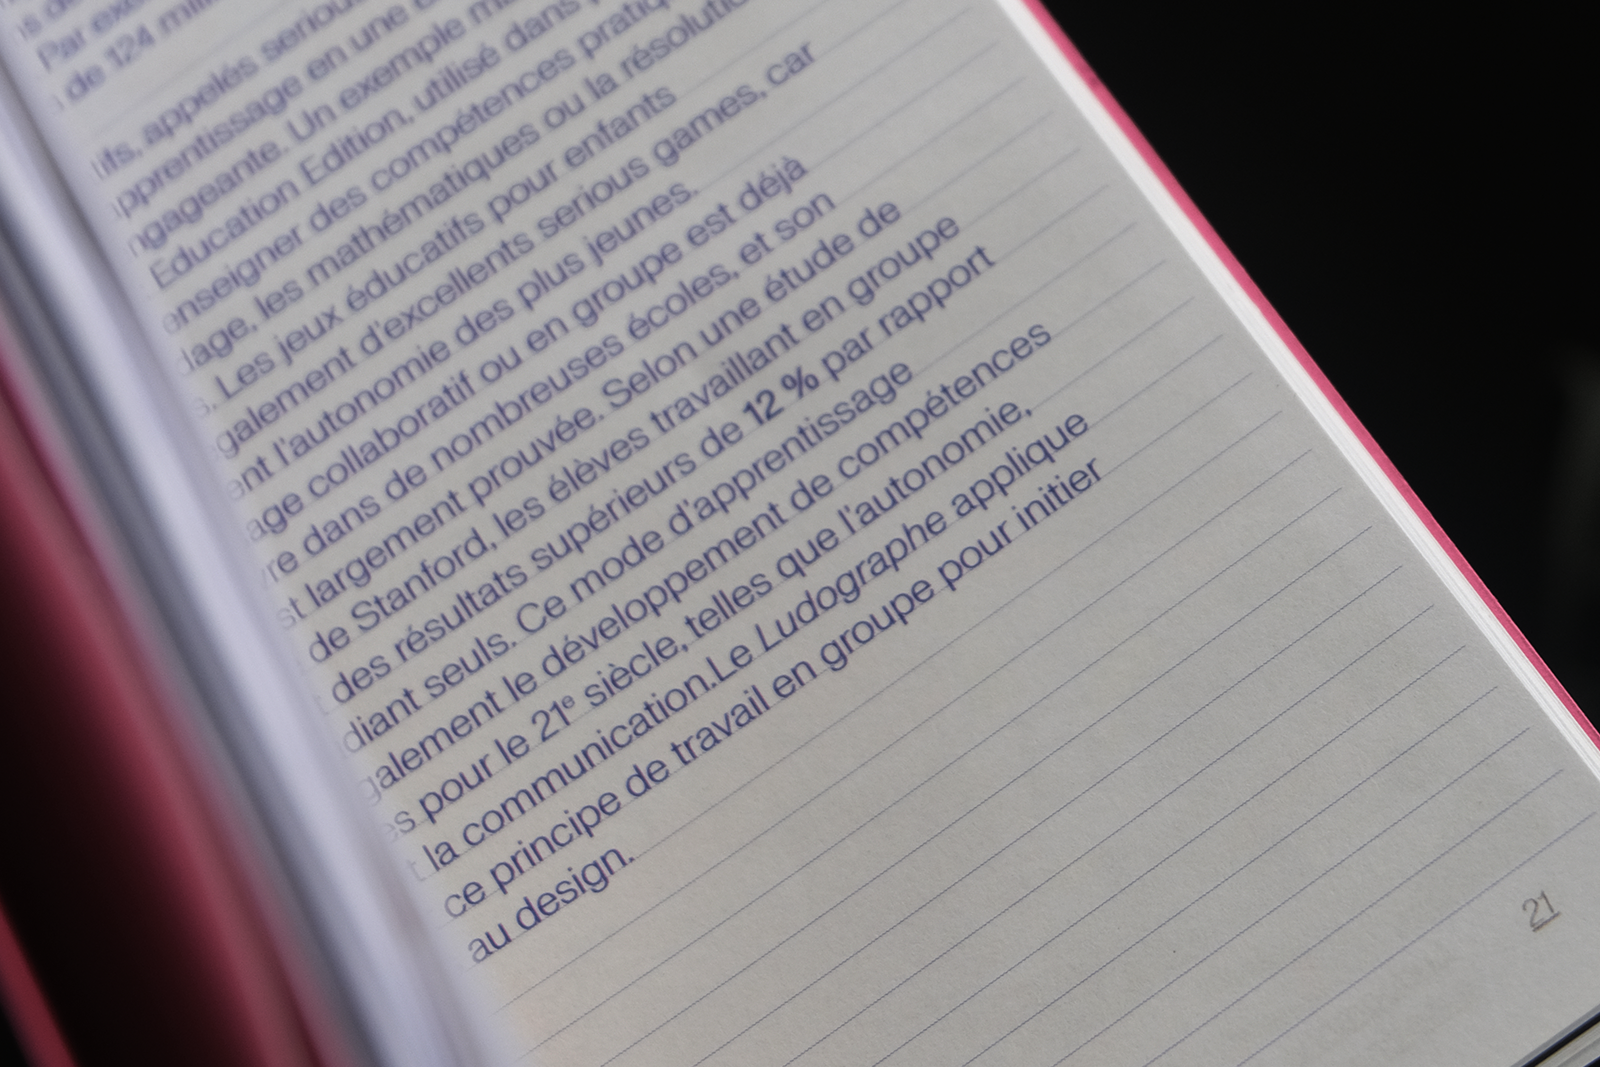 Par
de 124
appelés serious
apprentissage en une
Un exemple
Education Edition, utilisé dans
enseigner des compétences
les mathématiques ou la résolution
Les jeux éducatifs pour enfants
galement d'excellents serious games, car
ent l'autonomie des plus jeunes.
age collaboratif ou en groupe est déjà
re dans de nombreuses écoles, et son
st largement prouvée. Selon une étude de
de Stanford, les élèves travaillant en groupe
des résultats supérieurs de 12 % par rapport
diant seuls. Ce mode d'apprentissage
galement le développement de compétences
es pour le 21e siècle, telles que l'autonomie,
la communication.Le Ludographe applique
ce principe de travail en groupe pour initier
au design.
21